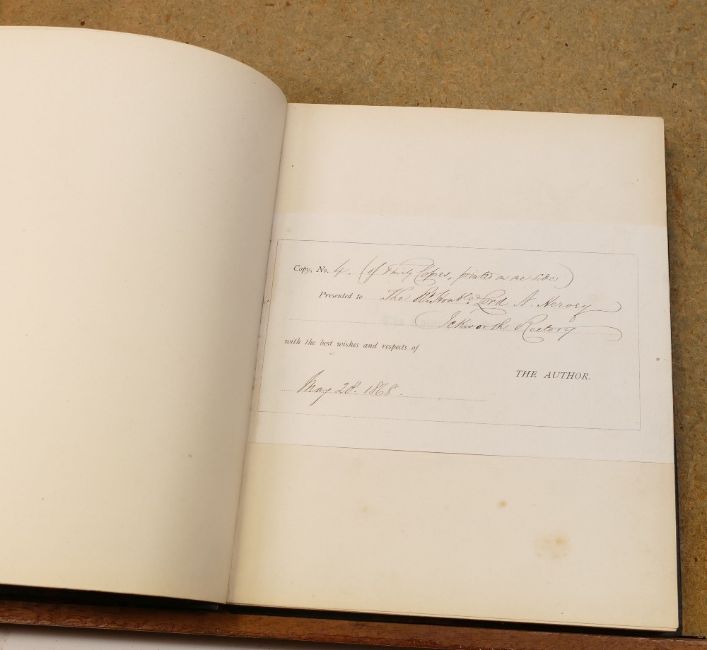 Copy, No. 4. (of Forty Copies, printed as
Presented to The Rt. Honble. Lord A. Hervey
Ickworth Rectory
with the best wishes and respects of
THE AUTHOR.
May 28. 1868.